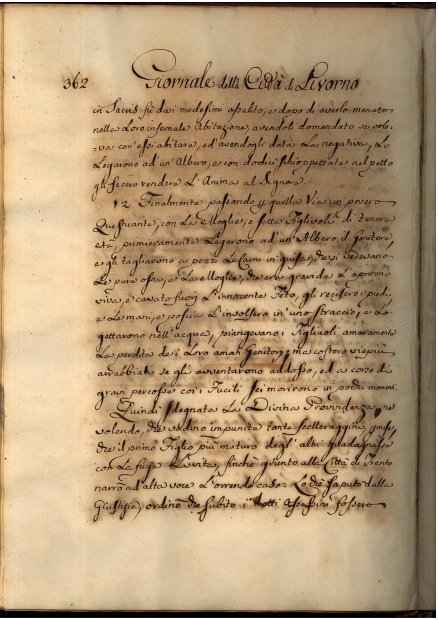 362 Giornale della Città di Livorno
in Sacris fù dai medesimi assalito, e dopo di averlo menato
nella Loro infernale Abitazione, avendoli domandato se vole-
-va con essi abitare, ed avendogli data La negativa, Lo
Legarono ad un'Albero, e con dodici schioppettate nel petto
gli fecero rendere L'Anima al Signore.
12 Finalmente passando p quella Via un povero
Questuante, con La Moglie, e sette Figlivoli di tenera
età, primieramente Legarono ad un'Albero il Genitore,
e gli tagliarono a pezzi Le Carni in guisa, che si vedevano
Le pure ossa, e La Moglie, che era gravida L'aprirono
viva, e cavato fuori L'innocente Feto, gli recisero i piedi,
e Le mani, e poscia L'involsero in uno straccio, e Lo
gettarono nell'acque, piangevano i Figliuoli amaramente
La perdita dei Loro amati Genitori; ma costoro viepiù
arrabbiati se gli avventarono addosso, ed a corso di
gravi percosse coi Fucili sei morirono in pochi momenti.
Quindi sdegnata La Divina Providenza, ne
volendo, che vadino impunite tante scelleraggini, fece,
che il primo Figlio più maturo degl'altri guadagnasse
con La fuga La vita, finchè giunto alla Città di Trento
narrò ad alta voce L'orrendo caso: Lo che saputo dalla
Giustizia, ordinò che subito i detti Assassini fossero